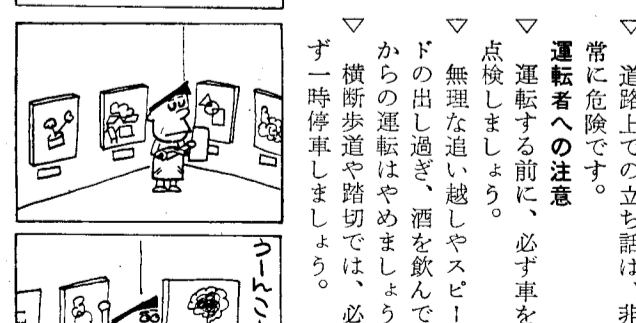 ▽　道路上での立ち話は、非
常に危険です。
運転者への注意
▽　運転する前に、必ず車を
点検しましょう。
▽　無理な追い越しやスピー
ドの出し過ぎ、酒を飲んで
からの運転はやめましょう
▽　横断歩道や踏切では、必
ず一時停車しましょう。
うーんこ